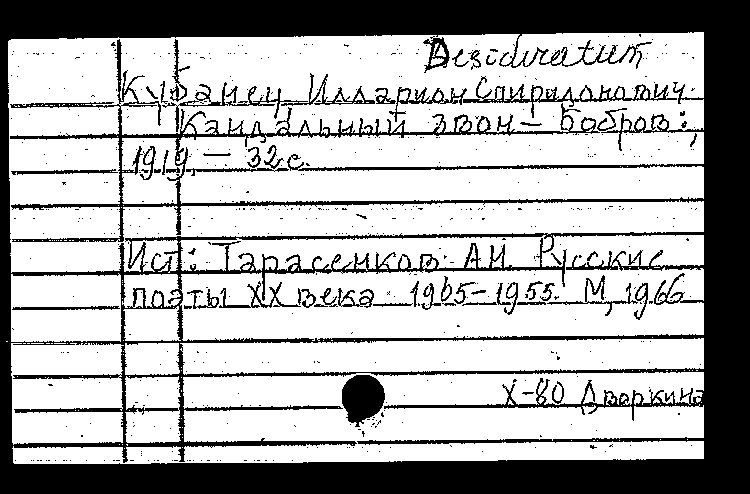 Desideratum
Кубанец, Илларион Спиридонович.
Кандальный звон – Бобров:,
1919. – 32 с.
Ист: Тарасенков А.Н. Русские
поэты XX века 1905–1955. М, 1966
X-80 Дворкина